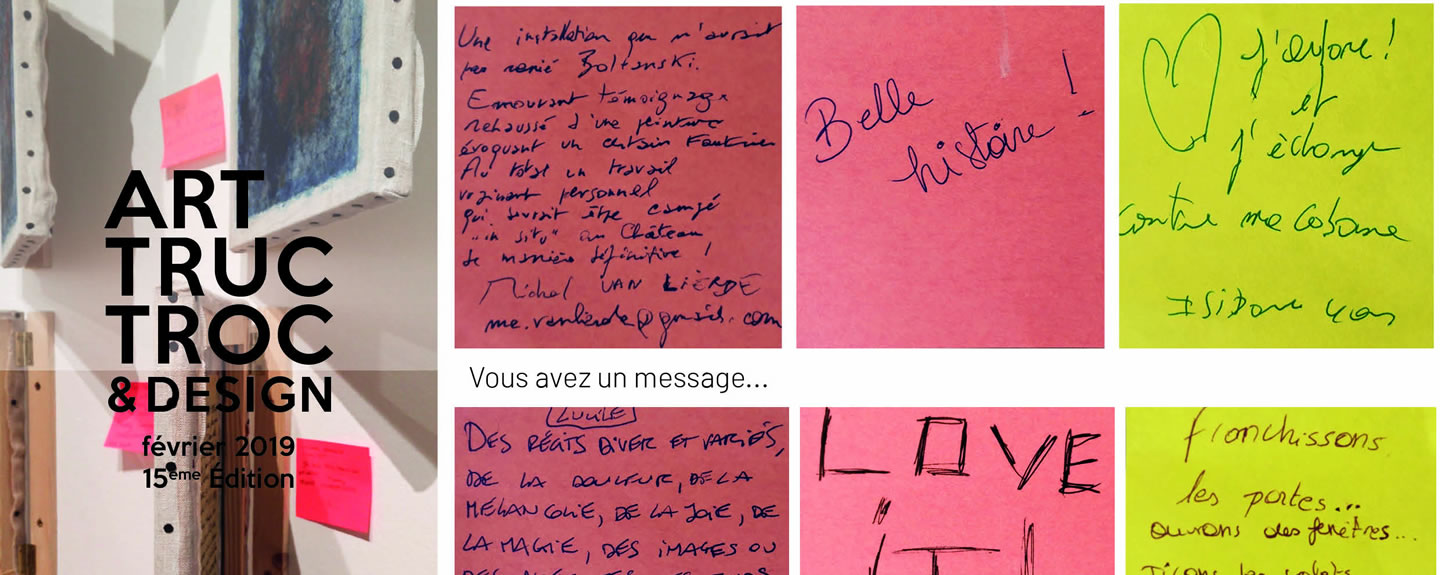 ART
TRUC
TROC
& DESIGN
février 2019
15ème Édition
Une installation que n'aurait
pas renié Boltanski.
Emouvant témoignage
rehaussé d'une peinture
évoquant un certain Fautrier
Au total un travail
vraiment personnel
qui devrait être
"in situ" au Château
de manière définitive !
Michel VAN LIERDE
Belle
histoire !
J'adore !
et
j'échange
contre ma cabane
Vous avez un message...
LUCILE
DES RÉCITS DIVER ET VARIÉS,
DE LA DOULEUR, DE LA
MÉLANCOLIE, DE LA JOIE, DE
LA MAGIE, DES IMAGES OU
LOVE
iT !
franchissons
les portes...
ouvrons des fenêtres...